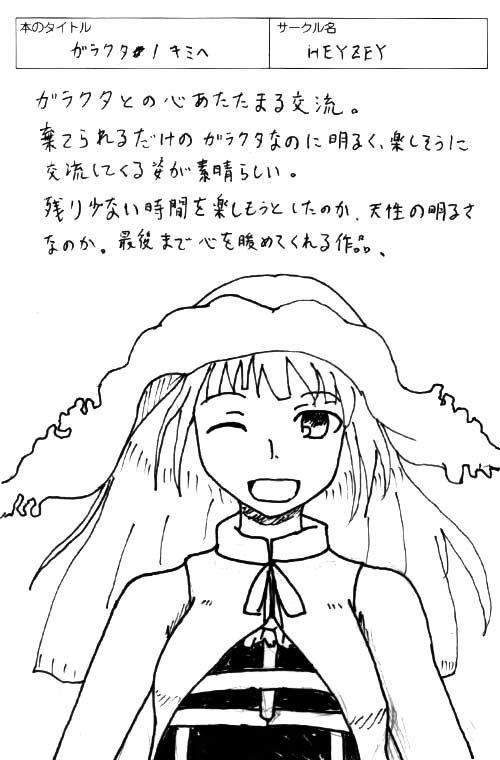 本のタイトル
サークル名
ガラクタ#1 キミへ
HEYZEY
ガラクタとの心あたたまる交流。
棄てられるだけのガラクタなのに明るく、楽しそうに
交流してくる姿が素晴らしい。
残り少ない時間を楽しもうとしたのか、天性の明るさ
なのか。最後まで心を暖めてくれる作品、